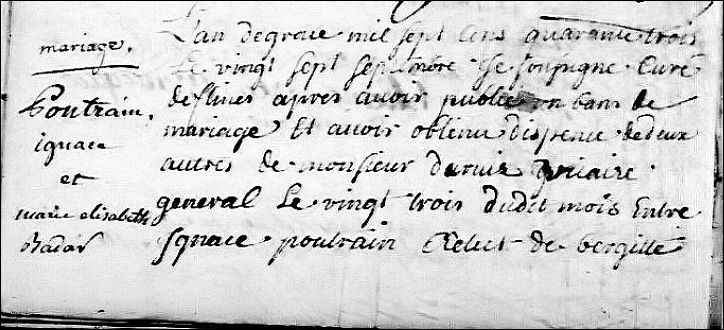 mariage.
Poutrain.
ignace
et
marie elisabeth
Badar
L'an de grace mil sept cens quarante trois
Le vingt sept septembre Je soussigne Curé
de flines apres avoir publié un ban de
mariage Et avoir obtenu dispence de deux
autres de monsieur vicaire
general Le vingt trois dudit mois Entre
Ignace poutrain Relict de